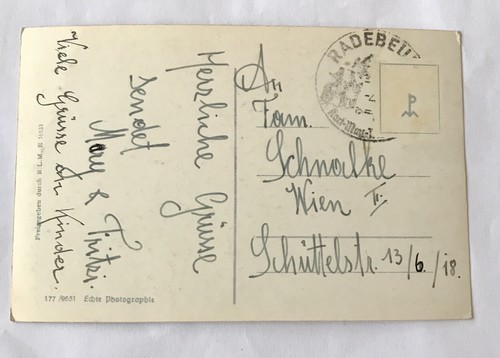 Viele Grüsse an Kinder.
Herzliche Grüsse
sendet
Mary & Fritzi.
An
Fam.
Schnalke
Wien II.
Schüttelstr. 13/6./18.
RADEBEUL
Karl-May-
Freigegeben durch R.L.M./N
177/9651 Echte Photographie